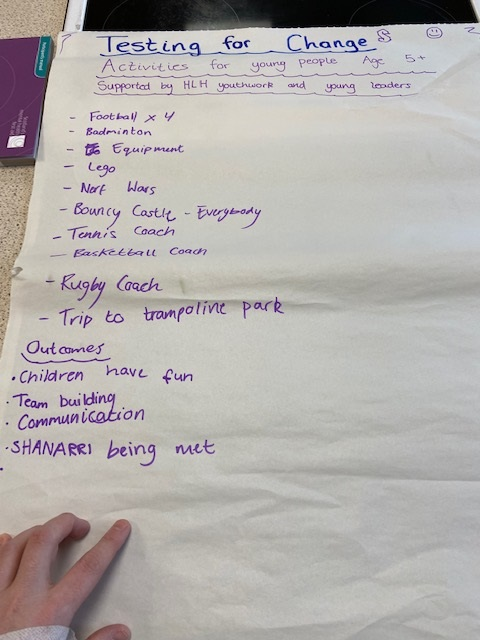 Testing for Change
Activities for young people Age 5+
Supported by HLH youthwork and young leaders
- Football x 4
- Badminton
- Equipment
- Lego
- Nerf Wars
- Bouncy Castle - Everybody
- Tennis Coach
- Basketball Coach
- Rugby Coach
- Trip to trampoline park
Outcomes
• Children have fun
• Team building
• Communication
• SHANARRI being met